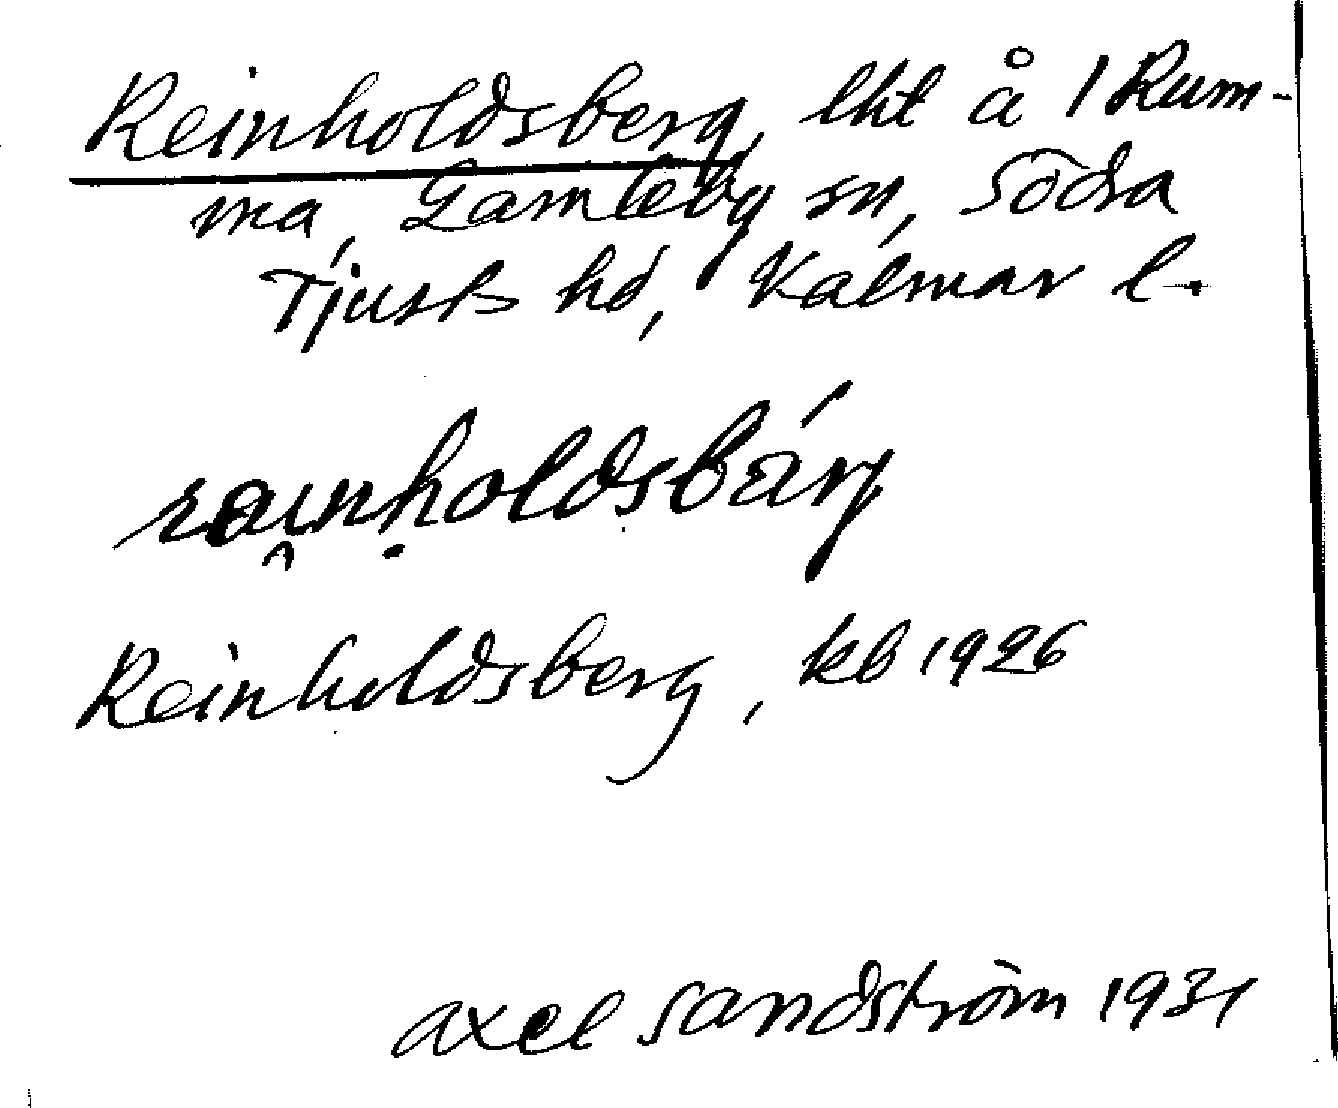 Reinholdsberg, lht å 1 Rum-
ma, Gamleby sn, Södra
Tjusts hd, Kalmar l.
Reinholdsberg, kb 1926
Axel Sandström 1931